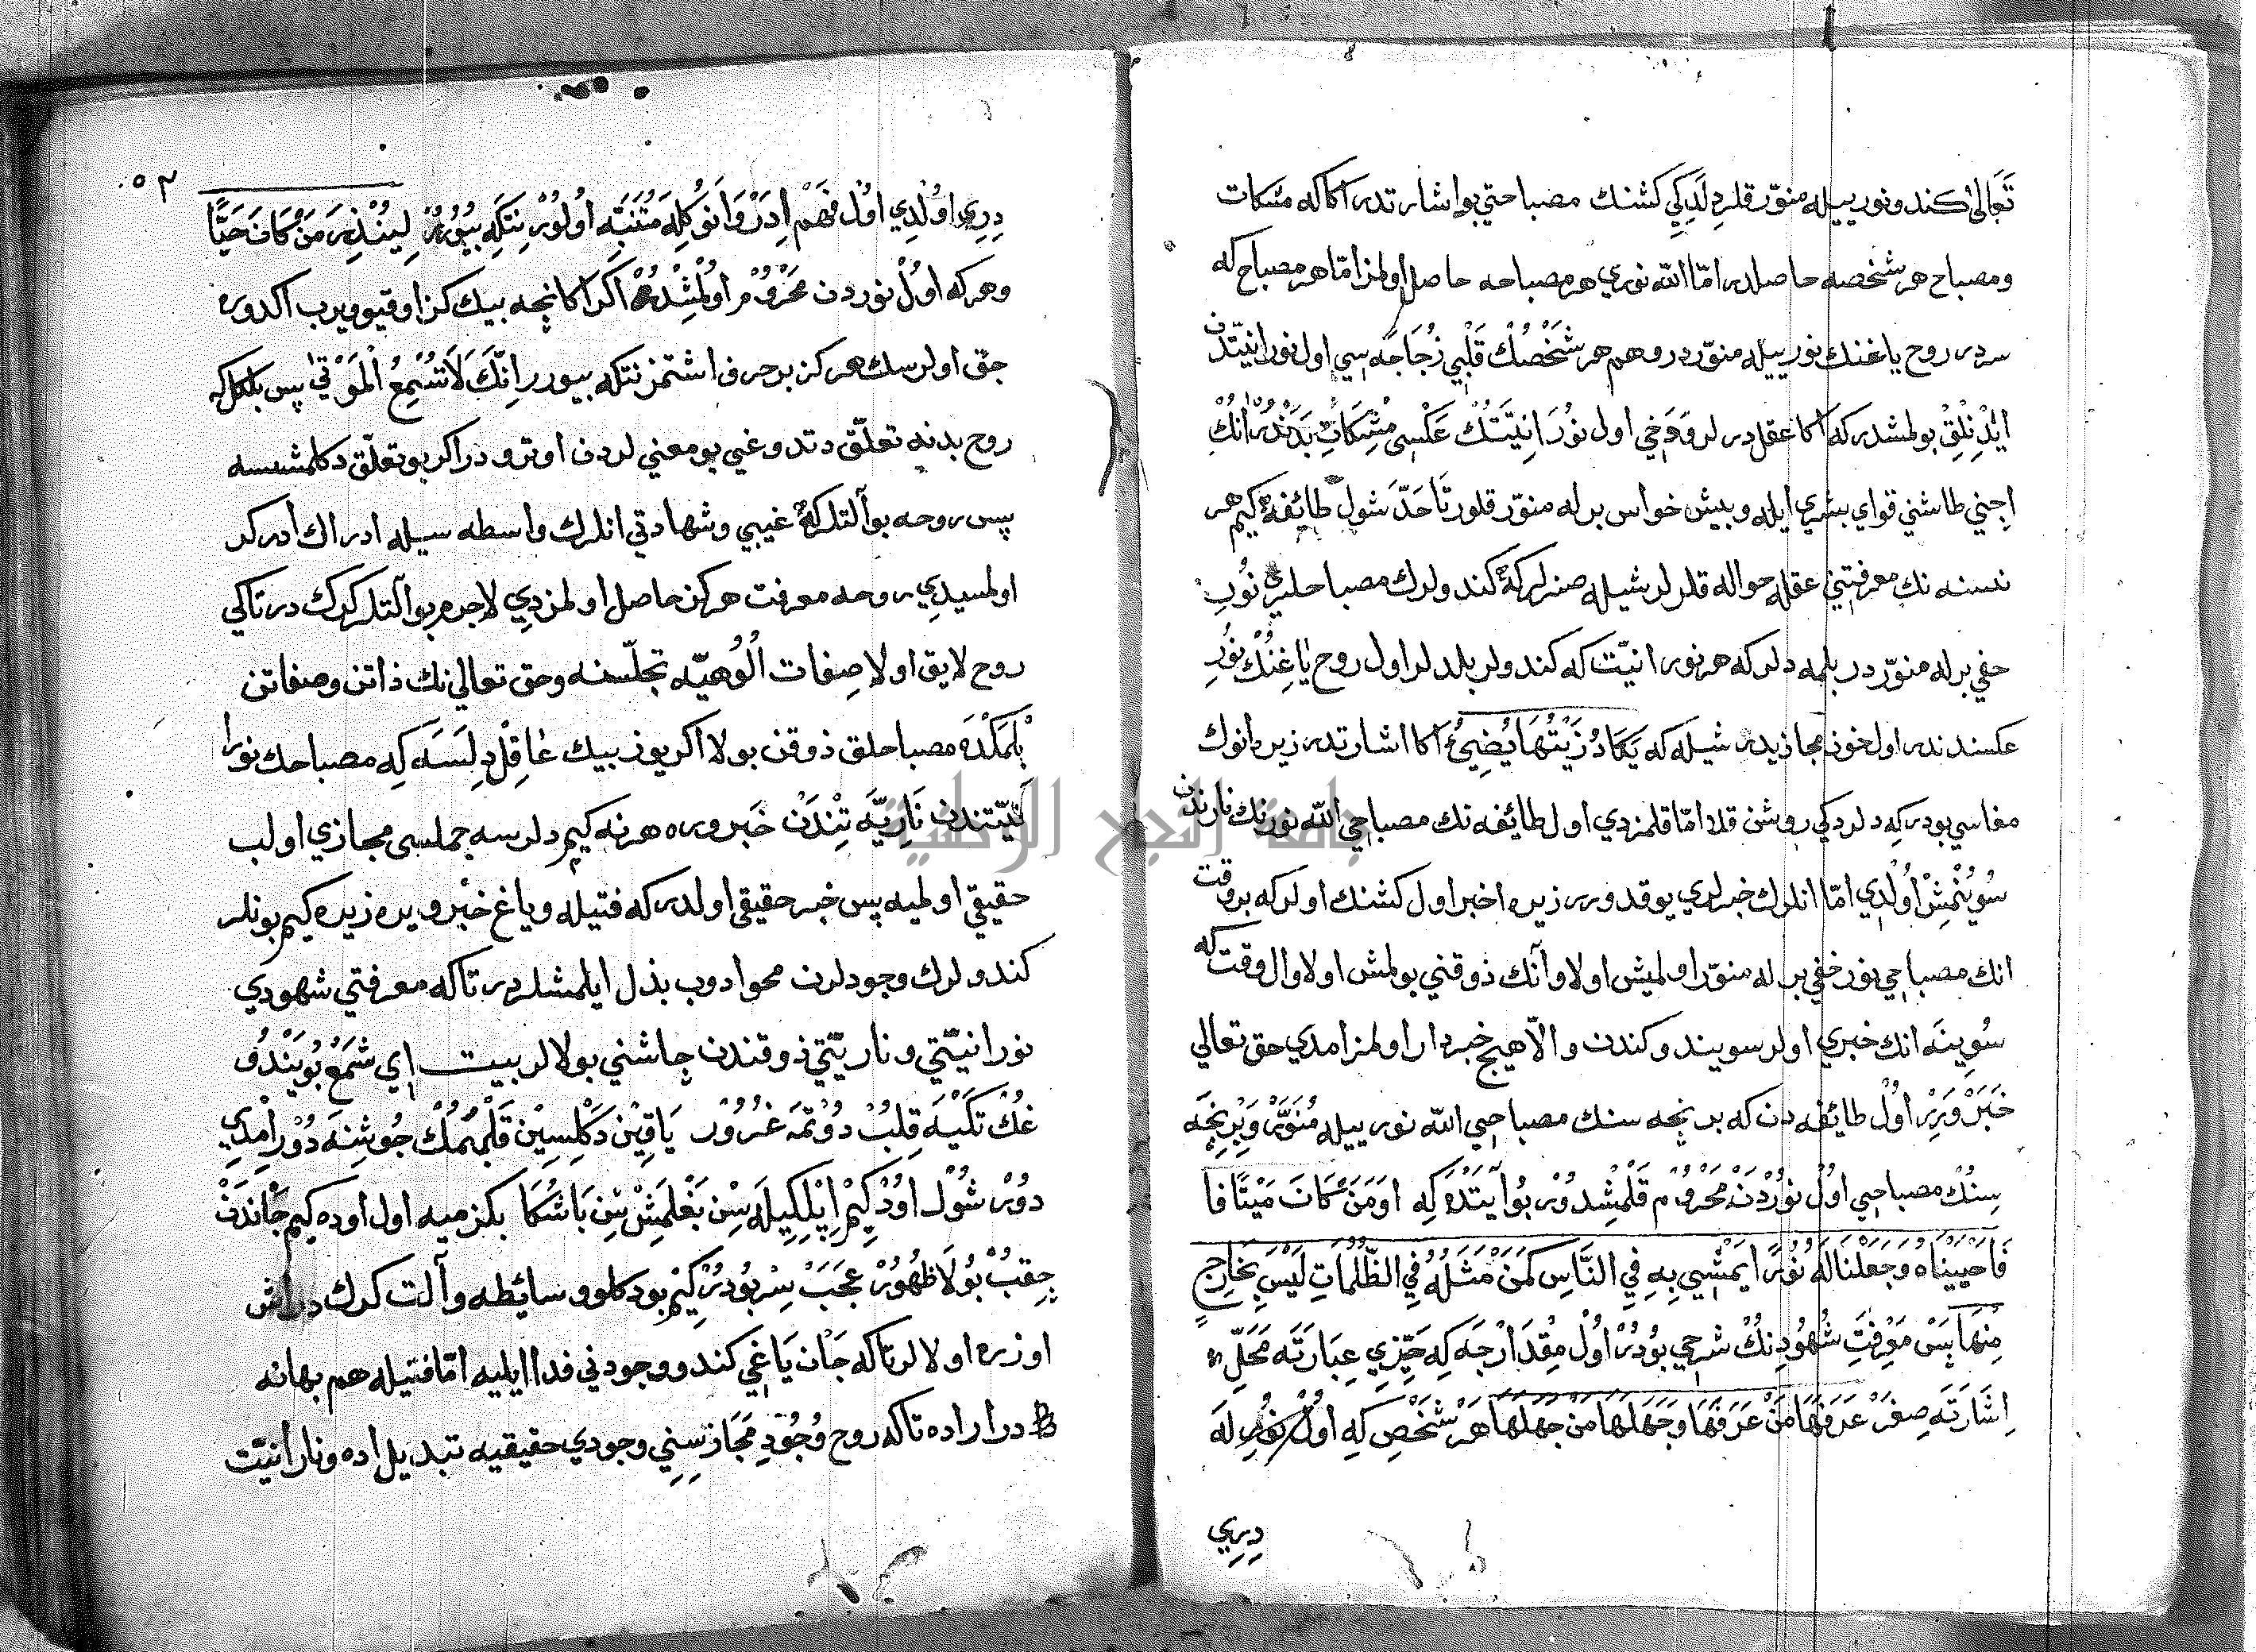 تَعَالیٰ کندو نوریيله منوّر قلر دِلَدِکي کشنك مصباحتي بو اشارتدر اکا که مشکات
ومصباح هر شخصه حاصلدر امّا اللّه نوري هر مصباحه حاصل اولمز امّا هر مصباح که
سردر روح ياغنك نورييله منوّردر وهم هر شخصُڭ قَلْبِي زُجَاجَه سي اول نورانيّتدن
ايْدِنْلِقْ بولمشدر که اکا عقل درلر وَدَخِي اول نُورَانِيَّتُڭ عَکْسِی مِشْکَاتِ بَدَنْدَدُرْ اَنُڭ
اِچِني طاشني قواي بشري ايله وبيش حواس برله منوّر قلور تَاحَدّ شول طائفۀ کيم هر
نسنه نك معرفتِني عقله حواله قلرلر شيله صنرلر که کندولرك مصباحلري نُورِ
خفي برله منوّردر بلمه دلر که هر نورانيّت که کندولر بلدلر اول روح يٰاغِنُڭ نُورِ
عکسندندر اول خود مجازيدر شيله که يَکَادُ زَيْتُهَا يُضِيئُ اکا اشارتدر زيرا نوك
معناسي بودر که دلردکي روشن قلا امّا قلمزدي اول طائفه نك مصباحي اللّه نورنك نارندن
سُويُنْمِشْ اُولْدِي امّا انلرك خبرلري يوقدورر زيرا خبر اول کشنك اولر که بر وقت
انك مصباحي نور خفي برله منوّر اولمش اولا وآنك ذوقني بولمش اولا واول وقت که
سُوينَه انك خبري اولر سويندوکندن والّا هيچ خبردار اولمز امدي حق تعالي
خَبَرْ وَرِرْ اوُلْ طائفه دن که بر نجه سنك مصباحيي اللّه نورييله مُنَوَّرْ وَبِرْ نِجَه
سِنُڭ مصباحيي اوُلْ نُورْدَنْ مَحْرُومْ قَلْمِشْدُوْرْ بُو آيَتْدَه کِه اَوَمَنْ کَانَ مَيْتًا فا
فَاَحْيَيْنَاهُ وَجَعَلْنَا لَهُ نُورًا يَمْشِي بِهِ فِي النَّاسِ کَمَنْ مَثَلُهُ فِي الظُّلُمَاتِ لَيْسَ بِخَارِجٍ
مِنْهَا پَسْ مَعْرِفَتِ شُهُودِنُڭ شرحي بُودُرْ اوُلْ مِقْدَارْجَه کِه حَيِّزِي عِبَارَتَه مَحَلِّ
اِشَارَتَه صِغَرْ عَرَفَهَا مَنْ عَرَفَهَا وَجَهَلَهَا مَنْ جَهَلَهَا هَرْ شَخْصِ کِه اوُلْ نُورِلَه
دِرِي
۵۲
دِرِي اوُلْدِي اوُلْ فَهْمْ اِدَرْ وَانُوڭلَه مُتَنَبِّه اُولُورْ نِتَکِه بُيُورُرْ لِيُنْذِرَ مَنْ کَانَ حَيًّا
وهر که اوُلْ نوردن مَحْرُومْ اوُلْمُشْدُرْ اکر اکا نيجه بيك کز اوقيوويرب اکدوره
جق اولرسك هرکز بر حرف اشتمز نتکه بيورر اِنَّكَ لَا تُسْمِعُ الْمَوْتٰی پس بلکل که
روح بدنه تعلّق دتدوغي بو معني لردن اوترودر اکر بو تعلّق دکلمشسه
پس روحه بو آلتلر که غيبي وشهادتي انلرك واسطه سيله ادراك ادرکر
اولمسيدي روحه معرفت هرکز حاصل اولمزدِي لاجرم بو آلتلر کرك در تاکي
روح لايق اولا صِفات الُوهيّه تجلّسنه وحق تعالي نك ذاتن وصفاتن
بِلْمَکْدَه مصباحلق ذوقن بولا اکر يوز بيك عٰاقِل دِلَسَه کِه مصباحك نورا
نيّتندن نَارِيَّه تِنْدَنْ خَبَر وره هر نه کيم دلرسه جملسی مجازي اولب
حقيقي اولميه پس خبر حقيقي اولدر که فتيله وياغ خَبَرْ ويره زيره کيم بونلر
کندولرك وجودلرن محو ادوب بذل ايلمشلردر تا که معرفتي شهودي
نورانيّتي وناريّتي ذوقندن چاشني بولالر بيت اِي شَمْعْ بُويَنْدُ
غُڭ تَکْيَه قِلِبْ دُوتْمَه غُرُورْ يَاقِيْن دَکِلْسِيْن قَلْبُمُڭ جُوشِنَه دُوْر اِمْدِي
دُوْر شُوْل اوُدْ کِيْم اِپْلِکِيلَه سِنْ بَغْلَمِشْ سِن بَاشُڭَا بکزميه اول اوده کيم جَانْدَنْ
چِقِبْ بُولَا ظُهُورْ عَجَبْ سِرْ بُودُرْ کِيْم بودکلو وسائطه وآلت کرك در اش
اوزره اولالر تا که جَان يَاغِي کندو وجودني فدا ايليه امّا فتيله هم بهانه
در اراده تا که روح وُجُودِ مَجَازِسِنِي وجودي حقيقيه تبديل اده ونارانيّت